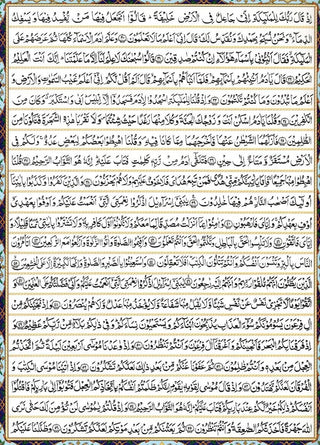 إذ قال ربك للملئكة إني جاعل في الأرض خليفة قالوا أتجعل فيها من يفسد فيها ويسفك
الدماء ونحن نسبح بحمدك ونقدس لك قال إني أعلم ما لا تعلمون وعلم آدم الأسماء كلها ثم عرضهم على
الملئكة فقال أنبئوني بأسماء هؤلاء إن كنتم صدقين قالوا سبحنك لا علم لنا إلا ما علمتنا إنك أنت العليم
الحكيم قال يآدم أنبئهم بأسمائهم فلما أنبأهم بأسمائهم قال ألم أقل لكم إني أعلم غيب السموات والأرض و
أعلم ما تبدون وما كنتم تكتمون وإذ قلنا للملئكة اسجدوا لآدم فسجدوا إلا إبليس أبى واستكبر وكان من
الكفرين وقلنا يآدم اسكن أنت وزوجك الجنة وكلا منها رغدا حيث شئتما ولا تقربا هذه الشجرة فتكونا من
الظلمين فأزلهما الشيطن عنها فأخرجهما مما كانا فيه وقلنا اهبطوا بعضكم لبعض عدو ولكم في
الأرض مستقر ومتاع إلى حين فتلقى آدم من ربه كلمات فتاب عليه إنه هو التواب الرحيم قلنا
اهبطوا منها جميعا فإما يأتينكم مني هدى فمن تبع هداي فلا خوف عليهم ولا هم يحزنون والذين كفروا وكذبوا بآياتنا
أولئك أصحاب النار هم فيها خلدون يبني إسرائيل اذكروا نعمتي التي أنعمت عليكم وأوفوا بعهدي
أوف بعهدكم وإياي فارهبون وآمنوا بما أنزلت مصدقا لما معكم ولا تكونوا أول كافر به ولا تشتروا بآياتي ثمنا قليلا و
إياي فاتقون ولا تلبسوا الحق بالباطل وتكتموا الحق وأنتم تعلمون وأقيموا الصلوة وآتوا الزكوة واركعوا مع الراكعين أتأمرون
الناس بالبر وتنسون أنفسكم وأنتم تتلون الكتاب أفلا تعقلون واستعينوا بالصبر والصلوة وإنها لكبيرة إلا على الخاشعين
الذين يظنون أنهم ملاقوا ربهم وأنهم إليه راجعون يبني إسرائيل اذكروا نعمتي التي أنعمت عليكم وأني فضلتكم على العالمين و
اتقوا يوما لا تجزي نفس عن نفس شيئا ولا يقبل منها شفاعة ولا يؤخذ منها عدل ولا هم ينصرون وإذ نجيناكم من
آل فرعون يسومونكم سوء العذاب يذبحون أبناءكم ويستحيون نساءكم وفي ذلكم بلاء من ربكم عظيم و
إذ فرقنا بكم البحر فأنجيناكم وأغرقنا آل فرعون وأنتم تنظرون وإذ واعدنا موسى أربعين ليلة ثم اتخذتم
العجل من بعده وأنتم ظالمون ثم عفونا عنكم من بعد ذلك لعلكم تشكرون وإذ آتينا موسى الكتاب و
الفرقان لعلكم تهتدون وإذ قال موسى لقومه يا قوم إنكم ظلمتم أنفسكم باتخاذكم العجل فتوبوا إلى بارئكم فاقتلوا
أنفسكم ذلكم خير لكم عند بارئكم فتاب عليكم إنه هو التواب الرحيم وإذ قلتم يا موسى لن نؤمن لك حتى نرى
الله جهرة فأخذتكم الصاعقة وأنتم تنظرون ثم بعثناكم من بعد موتكم لعلكم تشكرون